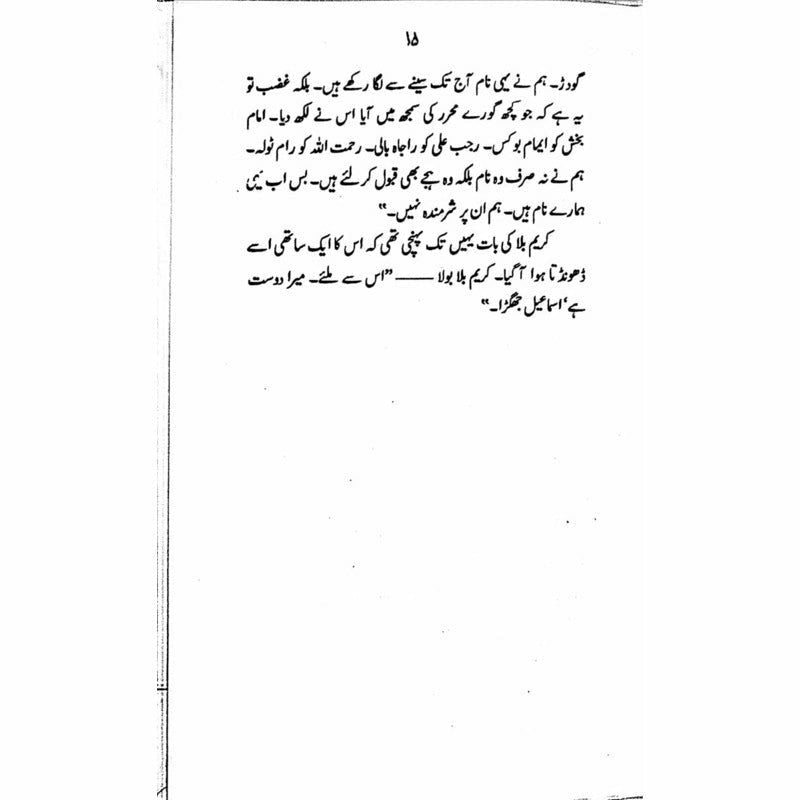 ۱۵
گودڑ۔ ہم نے یہی نام آج تک سینے سے لگا رکھے ہیں۔ بلکہ غضب تو
یہ ہے کہ جو کچھ گورے محرر کی سمجھ میں آیا اس نے لکھ دیا۔ امام
بخش کو ایمام بوکس۔ رجب علی کو راجاہ بالی۔ رحمت اللہ کو رام ٹولہ۔
ہم نے نہ صرف وہ نام بلکہ وہ ہجے بھی قبول کر لئے ہیں۔ بس اب یہی
ہمارے نام ہیں۔ ہم ان پر شرمندہ نہیں۔“
کریم بلا کی بات یہیں تک پہنچی تھی کہ اس کا ایک ساتھی اسے
ڈھونڈتا ہوا آ گیا۔ کریم بلا بولا —— ”اس سے ملئے۔ میرا دوست
ہے‘ اسماعیل جھگڑا۔“